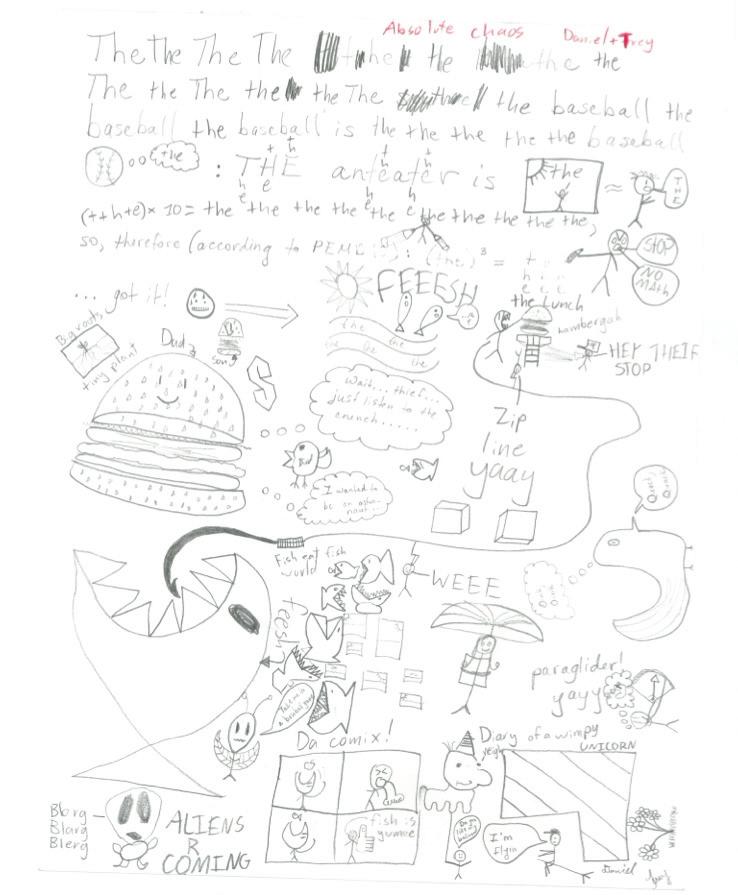 Absolute chaos Daniel + Trey
The the The The the the the the
The the The the the The the baseball the
baseball the baseball is the the the the the baseball
the : THE anteater is the ≈ THE
(t+h+e)× 10= the the the the the the the the the the,
so, therefore (according to PEMD : (the)³ =
STOP
NO MAth
... got it!
FEEESH
the Lunch
hambergah
HEY THEIF
STOP
Barouts
tiny plant
Dad
song
S
the
the the the the
Wait... thief...
just listen to the
crunch.....
Bird
I wanted to
be an
naut...
Zip
line
yaay
Quack
Quack
Fish eat fish
world
WEEE
feesh
paraglider!
yayy
Take me to
a baseball game
Da comix!
fish is
yumme
Diary of a wimpy
UNICORN
yeah
I'm
flyin
Daniel
Blorg
Blarg
Blerg
ALIENS
R
COMING